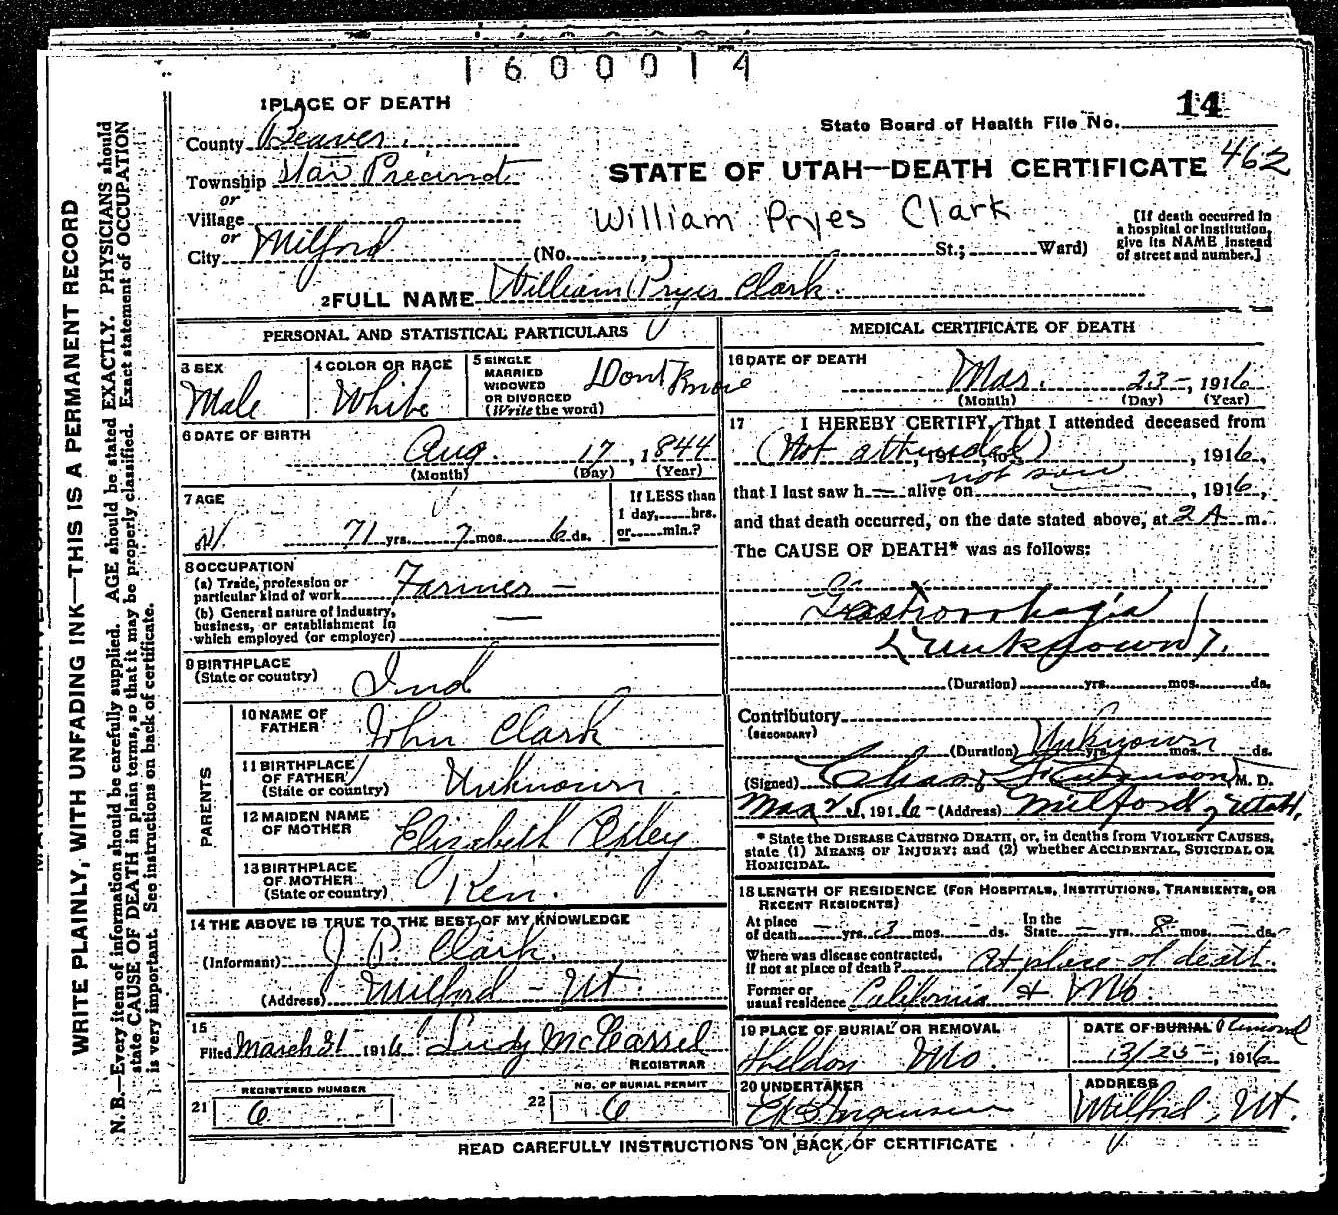 1600014
1 PLACE OF DEATH
14
State Board of Health File No.
County Beaver
STATE OF UTAH—DEATH CERTIFICATE 462
Township Star Precinct
or
Village
William Pryes Clark
[If death occurred in
a hospital or institution,
give its NAME instead
of street and number.]
or
City Milford (No. , St.; Ward)
2 FULL NAME William Pryes Clark
PERSONAL AND STATISTICAL PARTICULARS
3 SEX
Male
4 COLOR OR RACE
White
5 SINGLE
MARRIED
WIDOWED
OR DIVORCED
(Write the word)
Dont Know
6 DATE OF BIRTH
Aug. 17, 1844
(Month) (Day) (Year)
7 AGE
71 yrs. 7 mos. 6 ds.
If LESS than
1 day, hrs.
or min.?
8 OCCUPATION
(a) Trade, profession or
particular kind of work Farmer —
(b) General nature of industry,
business, or establishment in
which employed (or employer) —
9 BIRTHPLACE
(State or country) Ind
PARENTS
10 NAME OF
FATHER John Clark
11 BIRTHPLACE
OF FATHER
(State or country) Unknown.
12 MAIDEN NAME
OF MOTHER Elizabeth
13 BIRTHPLACE
OF MOTHER
(State or country) Ken.
14 THE ABOVE IS TRUE TO THE BEST OF MY KNOWLEDGE
(Informant) J. P. Clark.
(Address) Milford - Ut.
15
Filed March 31 1916 Judy
REGISTRAR
REGISTERED NUMBER
21 6
NO. OF BURIAL PERMIT
22 6
MEDICAL CERTIFICATE OF DEATH
16 DATE OF DEATH
Mar. 23-, 1916
(Month) (Day) (Year)
17 I HEREBY CERTIFY, That I attended deceased from
(Not attended) , 191 , to , 1916,
that I last saw h — alive on not seen , 1916,
and that death occurred, on the date stated above, at 2 A m.
The CAUSE OF DEATH* was as follows:
Gastrorrhagia
(Unknown).
(Duration) yrs. mos. ds.
Contributory
(SECONDARY)
(Duration) Unknown yrs. mos. ds.
(Signed) Chas. M. D.
Mar 25, 1916 - (Address) Milford, Utah.
* State the DISEASE CAUSING DEATH, or, in deaths from VIOLENT CAUSES,
state (1) MEANS OF INJURY; and (2) whether ACCIDENTAL, SUICIDAL OR
HOMICIDAL.
18 LENGTH OF RESIDENCE (FOR HOSPITALS, INSTITUTIONS, TRANSIENTS, OR
RECENT RESIDENTS)
At place
of death — yrs. 3 mos. — ds.
In the
State — yrs. 8 mos. — ds.
Where was disease contracted,
if not at place of death? At place of death.
Former or
usual residence California & Mo.
19 PLACE OF BURIAL OR REMOVAL
Sheldon Mo.
DATE OF BURIAL
3/25-, 1916
20 UNDERTAKER
ADDRESS
Milford, Ut.
READ CAREFULLY INSTRUCTIONS ON BACK OF CERTIFICATE
WRITE PLAINLY, WITH UNFADING INK—THIS IS A PERMANENT RECORD
N. B.—Every item of information should be carefully supplied. AGE should be stated EXACTLY. PHYSICIANS should
state CAUSE OF DEATH in plain terms, so that it may be properly classified. Exact statement of OCCUPATION
is very important. See instructions on back of certificate.